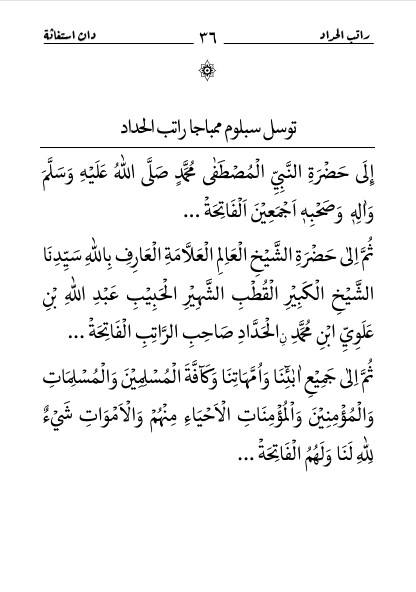 راتب الحداد ٣٦ دان استغاثة
توسل سبلوم ممباچا راتب الحداد
إِلَى حَضْرَةِ النَّبِيِّ الْمُصْطَفٰى مُحَمَّدٍ صَلَّى اللهُ عَلَيْهِ وَسَلَّمَ
وَاٰلِهٖ وَصَحْبِهٖ اَجْمَعِيْنَ اَلْفَاتِحَةْ ...
ثُمَّ اِلٰى حَضْرَةِ الشَّيْخِ الْعَالِمِ الْعَلَّامَةِ الْعَارِفِ بِاللهِ سَيِّدِنَا
الشَّيْخِ الْكَبِيْرِ الْقُطْبِ الشَّهِيْرِ الْحَبِيْبِ عَبْدِ اللهِ بْنِ
عَلَوِيِّ ابْنِ مُحَمَّدِ نِ الْحَدَّادِ صَاحِبِ الرَّاتِبِ الْفَاتِحَةْ ...
ثُمَّ اِلٰى جَمِيْعِ اٰبَآئِنَا وَاُمَّهَاتِنَا وَكَآفَّةَ الْمُسْلِمِيْنَ وَالْمُسْلِمَاتِ
وَالْمُؤْمِنِيْنَ وَالْمُؤْمِنَاتِ الْاَحْيَاءِ مِنْهُمْ وَالْاَمْوَاتِ شَيْءٌ
لِلّٰهِ لَنَا وَلَهُمُ الْفَاتِحَةْ ...